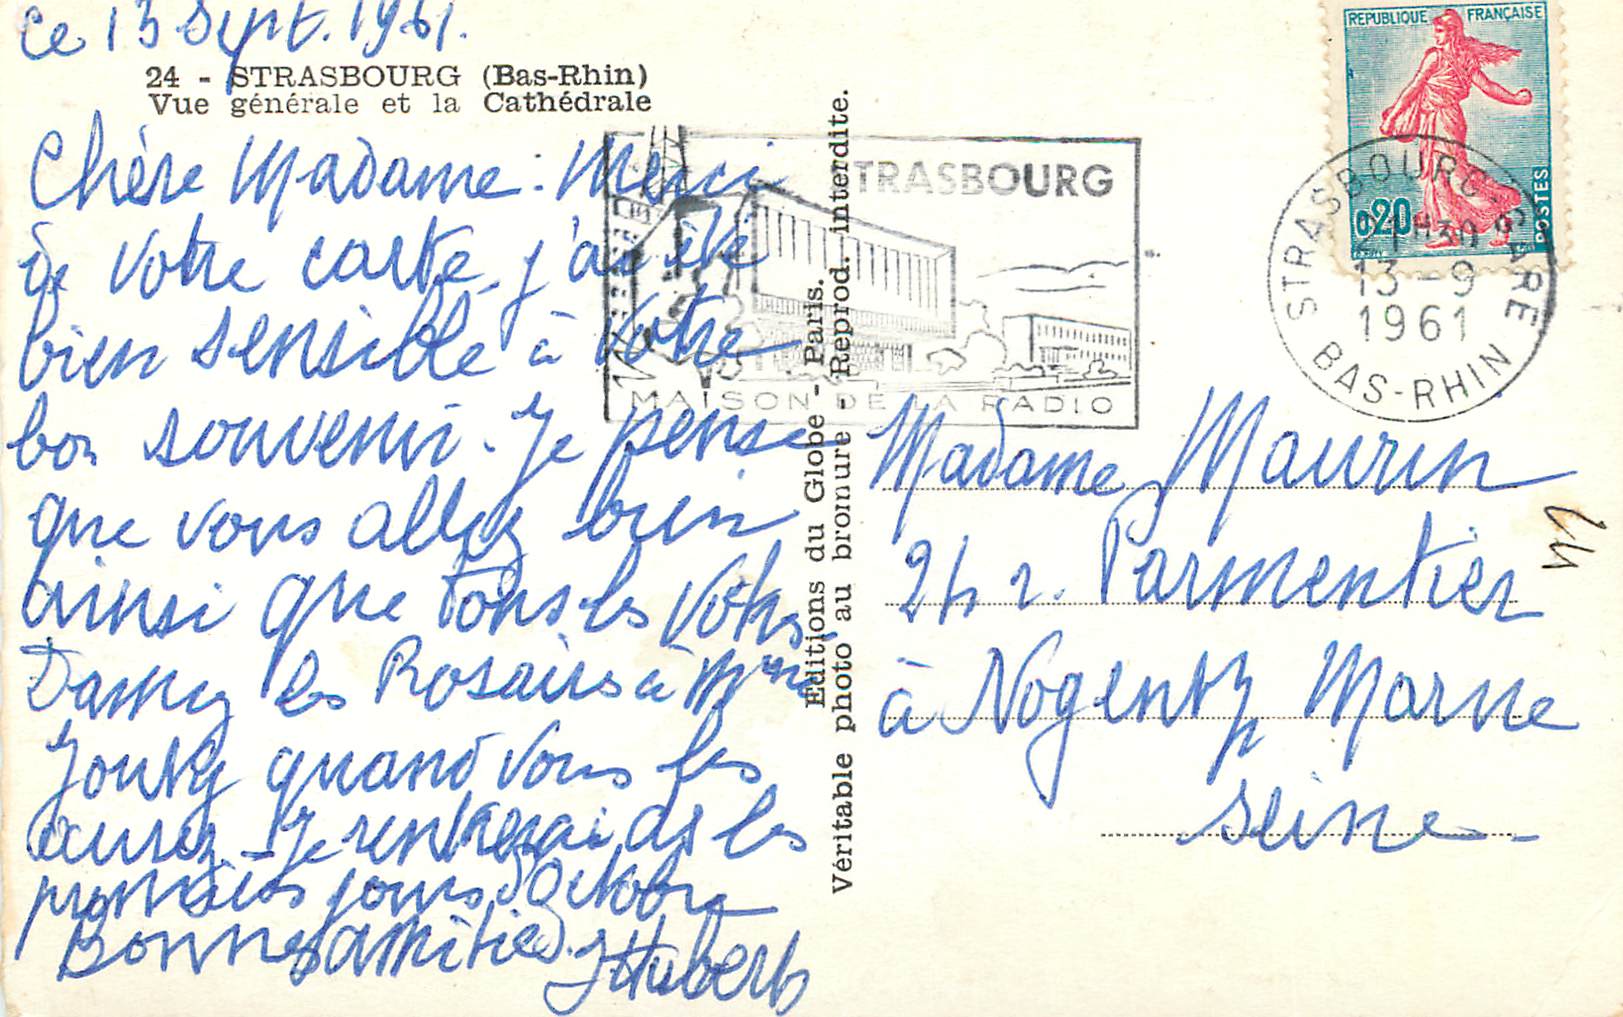 Ce 13 Sept. 1961.
24 - STRASBOURG (Bas-Rhin)
Vue générale et la Cathédrale
Chère Madame : Merci
de votre carte, j'ai été
bien sensible à votre
bon souvenir. Je pense
que vous allez bien
ainsi que tous les vôtres.
Donnez les Rosaires à Mme
quand vous les
aurez. Je rentrerai ds les
premiers jours d'Octobre
Bonnes amitiés. J Hubert
Editions du Globe - Paris.
Véritable photo au bromure - Reprod. interdite.
STRASBOURG
MAISON DE LA RADIO
REPUBLIQUE FRANÇAISE
0,20
POSTES
STRASBOURG-GARE
21H30
13-9
1961
BAS-RHIN
Madame Maurin
24 r. Parmentier
à Nogent s/ Marne
Seine